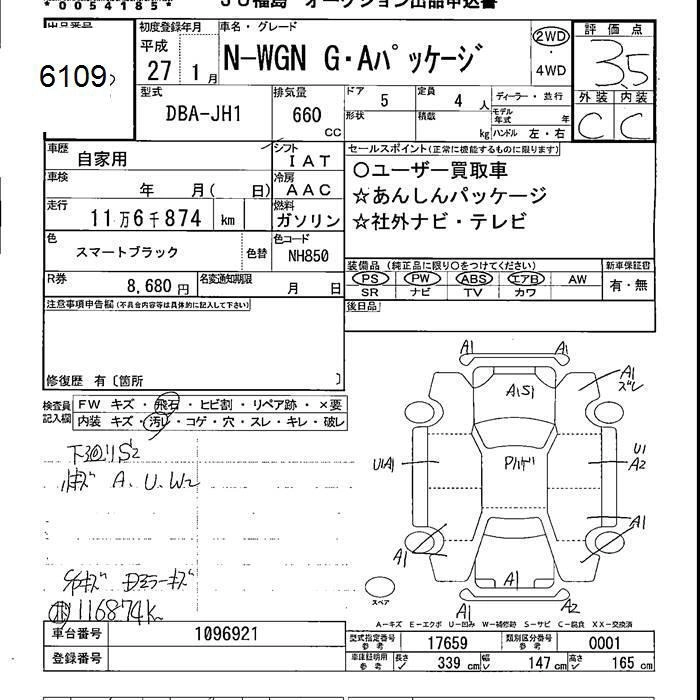 * 0 0 5 4 1 8 5 *
ＪＵ福島 オークション出品申込書
出品番号
6109
初度登録年月
平成
27 1 月
車名・グレード
N-WGN G・Aパッケージ
2WD
・
4WD
評価点
3.5
外装 内装
C C
型式
DBA-JH1
排気量
660
CC
ドア
5
定員
4 人
ディーラー・並行
形状
積載
kg
モデル年式
年
ハンドル 左・右
車歴
自家用
シフト
IAT
車検
年 月( 日)
冷房
AAC
走行
11 万 6 千 874 km
燃料
ガソリン
色
スマートブラック
色替
色コード
NH850
R券
8,680 円
名変通知期限
月 日
セールスポイント(正常に機能するものに限り)
○ユーザー買取車
☆あんしんパッケージ
☆社外ナビ・テレビ
装備品 (純正品に限り○をつけてください)
PS PW ABS エアB AW
SR ナビ TV カワ
新車保証書
有・無
注意事項申告欄(不具合内容等は具体的に記入して下さい)
後日品
修復歴 有〔箇所 〕
検査員
記入欄
FW キズ・飛石・ヒビ割・リペア跡・×要
内装 キズ・汚レ・コゲ・穴・スレ・キレ・破レ
下回りS2
A、U、W2
Dミラーキズ
116874K
A1 A1
A1S1
A1
ズレ
U1A1
U1
A2
A1
A1
A1
A1 A2
スペア
A－キズ E－エクボ U－凹み W－補修跡 S－サビ C－腐食 XX－交換済
車台番号
1096921
登録番号
型式指定番号
参考
17659
類別区分番号
参考
0001
車庫証明用
参考
長さ 339 cm 幅 147 cm 高さ 165 cm